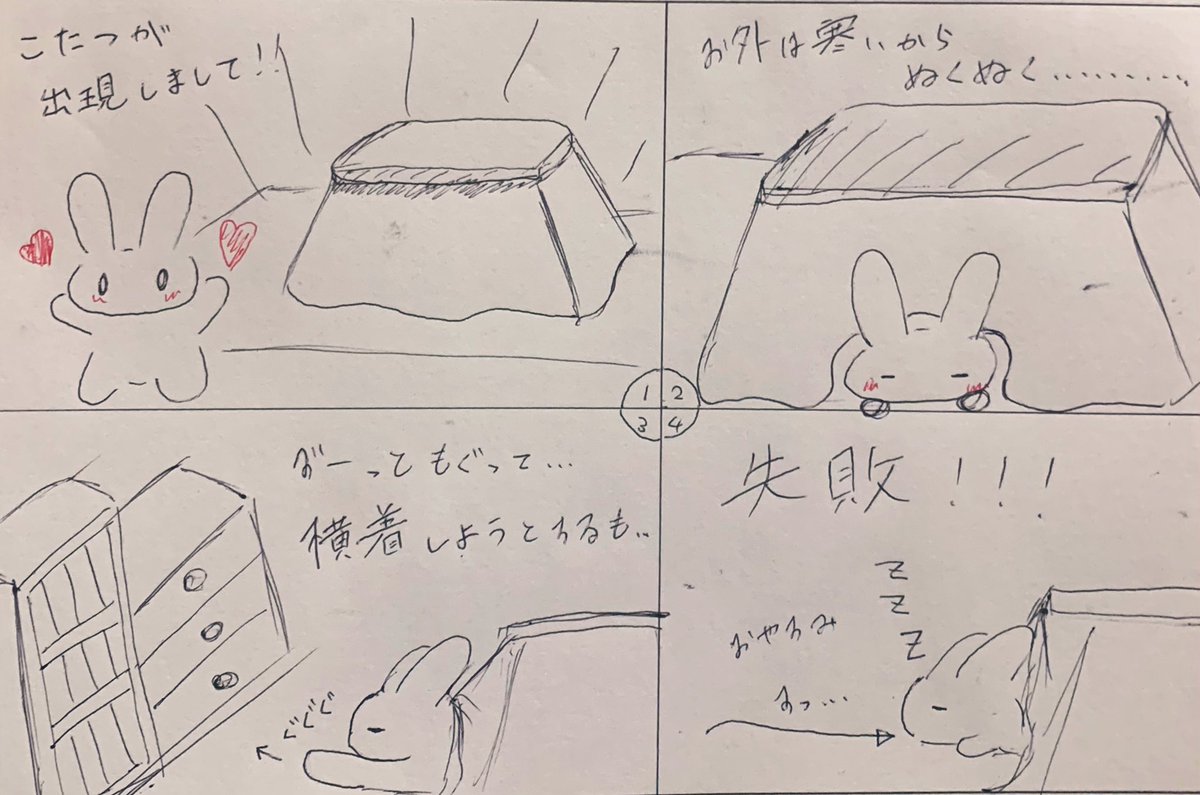 こたつが
出現しまして!!
お外は寒いから
ぬくぬく..........
もぐって...
横着しようとするも..
ぐぐぐ
失敗!!!
z
z
z
おやすみ
1 2
3 4